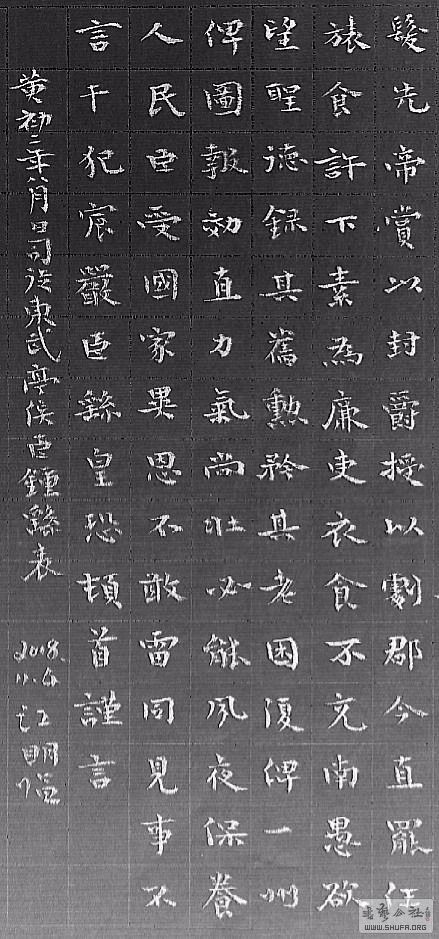 髮先帝賞以封爵授以劇郡今直罷任
旅食許下素為廉吏衣食不充南愚欲
望聖德錄其舊勳矜其老困復俾一州
俾圖報効直力氣尚壯必能夙夜保養
人民臣受國家異恩不敢雷同見事不
言干犯宸嚴臣繇皇恐頓首謹言
黃初二年八月日司徒東武亭侯臣鍾繇表
2018.
江明
WWW.SHUFA.ORG